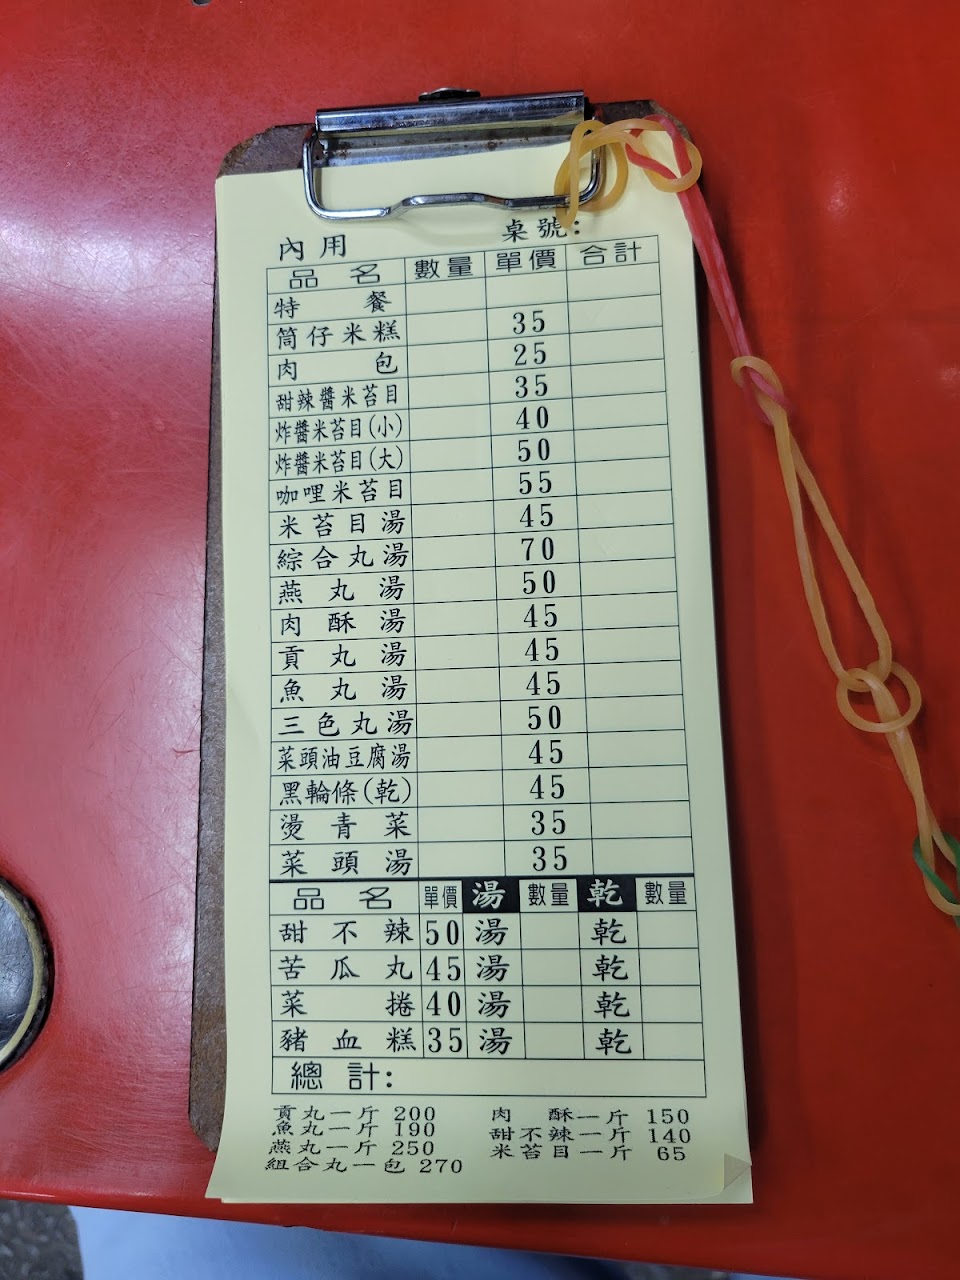 內用 桌號:
品名 數量 單價 合計
特餐
筒仔米糕 35
肉包 25
甜辣醬米苔目 35
炸醬米苔目(小) 40
炸醬米苔目(大) 50
咖哩米苔目 55
米苔目湯 45
綜合丸湯 70
燕丸湯 50
肉酥湯 45
貢丸湯 45
魚丸湯 45
三色丸湯 50
菜頭油豆腐湯 45
黑輪條(乾) 45
燙青菜 35
菜頭湯 35
品名 單價 湯 數量 乾 數量
甜不辣 50 湯 乾
苦瓜丸 45 湯 乾
菜捲 40 湯 乾
豬血糕 35 湯 乾
總計:
貢丸一斤 200 肉酥一斤 150
魚丸一斤 190 甜不辣一斤 140
燕丸一斤 250 米苔目一斤 65
組合丸一包 270